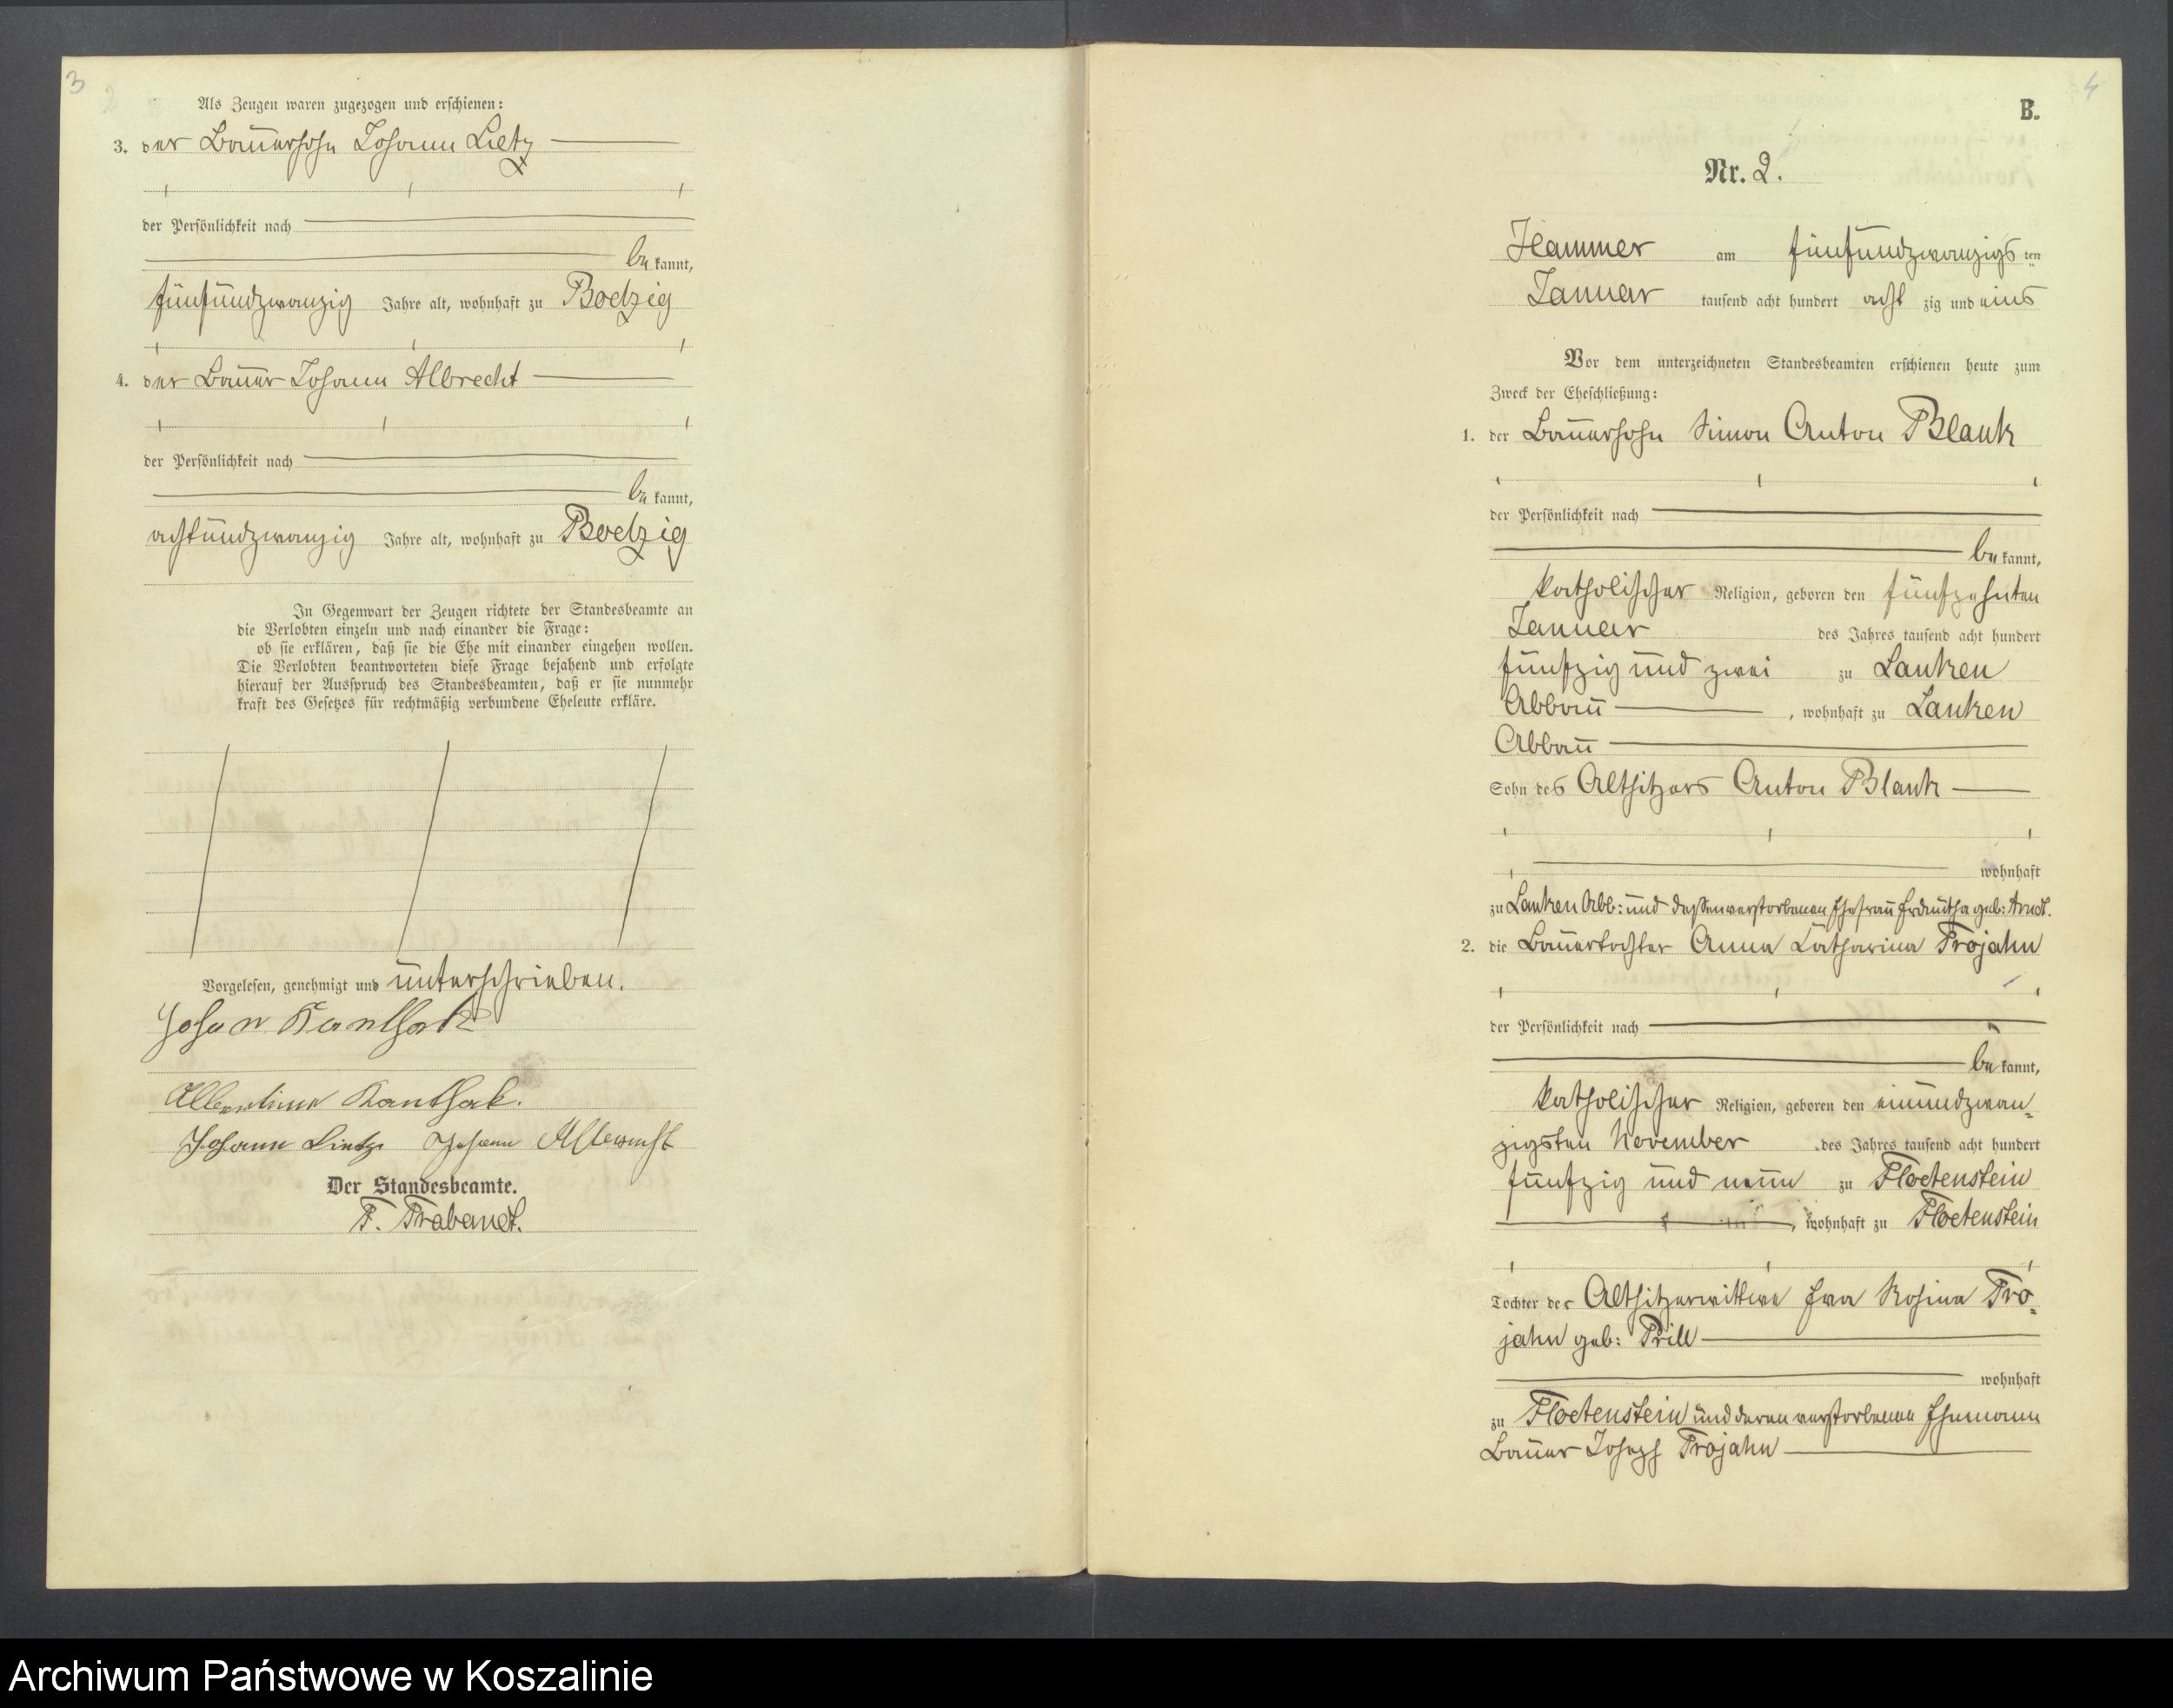 3
Als Zeugen waren zugezogen und erschienen:
3. der Bauersohn Johann Lietz
der Persönlichkeit nach
be kannt,
fünfundzwanzig Jahre alt, wohnhaft zu Boelzig
4. der Bauer Johann Albrecht
der Persönlichkeit nach
be kannt,
achtundzwanzig Jahre alt, wohnhaft zu Boelzig
In Gegenwart der Zeugen richtete der Standesbeamte an
die Verlobten einzeln und nach einander die Frage:
ob sie erklären, daß sie die Ehe mit einander eingehen wollen.
Die Verlobten beantworteten diese Frage bejahend und erfolgte
hierauf der Ausspruch des Standesbeamten, daß er sie nunmehr
kraft des Gesetzes für rechtmäßig verbundene Eheleute erkläre.
Vorgelesen, genehmigt und unterschrieben.
Johan Kanthak
Albertine Kanthak.
Johann Lietz Johann Albrecht
Der Standesbeamte.
F. Trabandt.
4
B.
Nr. 2.
Hammer am fünfundzwanzigs ten
Januar tausend acht hundert acht zig und eins
Vor dem unterzeichneten Standesbeamten erschienen heute zum
Zweck der Eheschließung:
1. der Bauersohn Simon Anton Blank
der Persönlichkeit nach
be kannt,
katholischer Religion, geboren den fünfzehnten
Januar des Jahres tausend acht hundert
fünfzig und zwei zu Lanken
Abbau , wohnhaft zu Lanken
Abbau
Sohn des Altsitzers Anton Blank
wohnhaft
zu Lanken Abb: und dessen verstorbenen Ehefrau geb: Arndt.
2. die Bauertochter Anna Catharina Trojahn
der Persönlichkeit nach
be kannt,
katholischer Religion, geboren den einundzwan-
zigsten November des Jahres tausend acht hundert
fünfzig und neun zu Floetenstein
, wohnhaft zu Floetenstein
Tochter der Altsitzerwittwe Eva Rosina Tro-
jahn geb: Prill
wohnhaft
zu Floetenstein und deren verstorbenen Ehemann
Bauer Joseph Trojahn
Archiwum Państwowe w Koszalinie